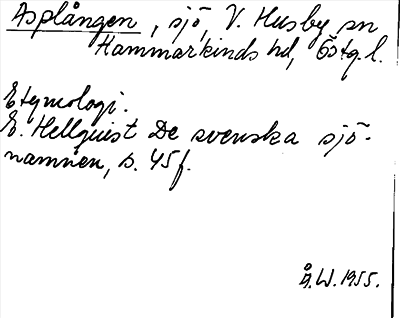 Asplången, sjö, V. Husby sn
Hammarkinds hd, Östg. l.
Etymologi.
E. Hellquist De svenska sjö-
namnen, s. 45 f.
Å. W. 1955.